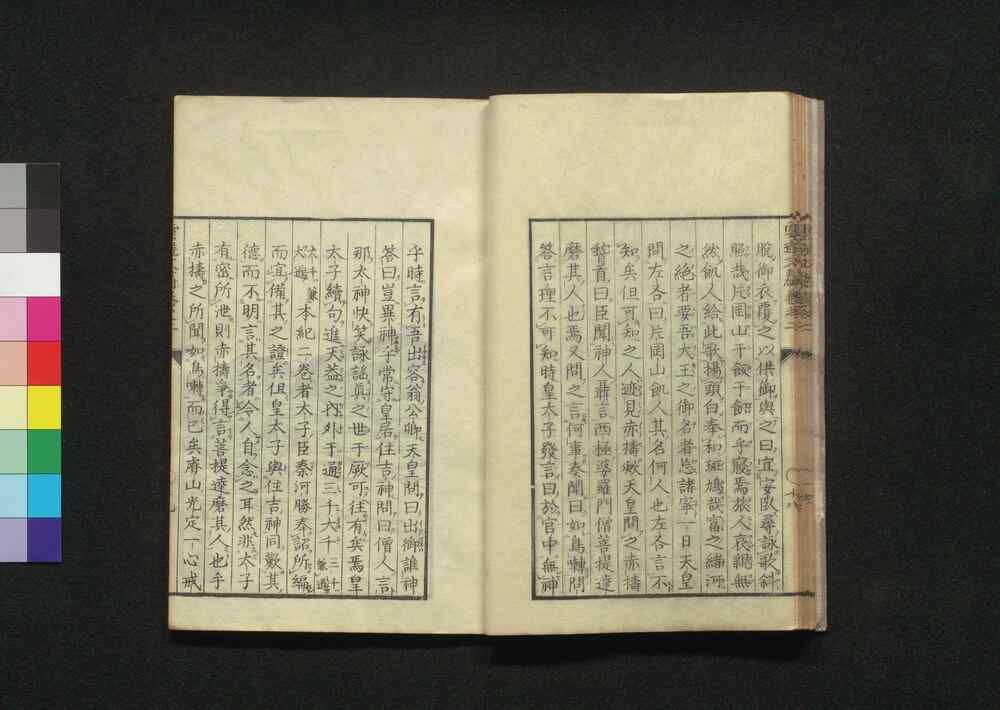 脫御衣覆之以供御輿之曰宜安臥尋詠歌斜
照哉片岡山于餓于飢而乎臥焉旅人哀親無
然飢人給此歌揚頭白奉和斑鳩哉富之緒河
之絕者要吾大王之御名者忘諸寧一日天皇
問左右曰片岡山飢人其名何人也左右言不
知矣但可知之人迹見赤檮歟天皇問之赤檮
稽首曰臣聞神人聶言西極婆羅門僧菩提達
磨其人也焉又問之言何事奏聞曰如鳥囀問
答言理不可知時皇太子發言曰於宮中無神
乎時言有吾出容翁公卿天皇問曰出御誰神
答曰豈異神乎常守皇居住吉神問曰僧人言
那太神快笑詠謠眞之世于厥可往有矣焉皇
太子續句進天益之內外于通三千六千三十
本紀二卷者太子臣秦河勝奉詔所編
而宜備其之證矣但皇太子與住吉神同歎其
德而不明言其名者令人自念之耳然非太子
有密所泄則赤檮爭得言菩提達磨其人也乎
赤檮之所聞如鳥囀而已矣麻山光定一心戒